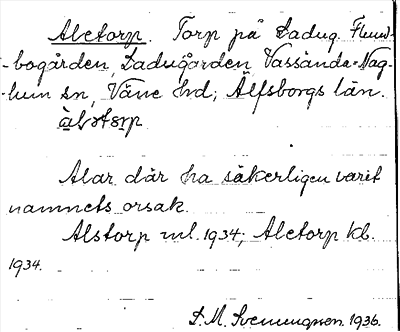 Aletorp. Torp på Ladug. Fluw-
-bogården, Ladugården, Vassända-Nag-
-lum sn, Väne hd; Älfsborgs län.
àlətɔrp
Alar där ha säkerligen varit
namnets orsak.
Alstorp ml. 1934; Aletorp kb.
1934.
S. M. Svenungson. 1936.